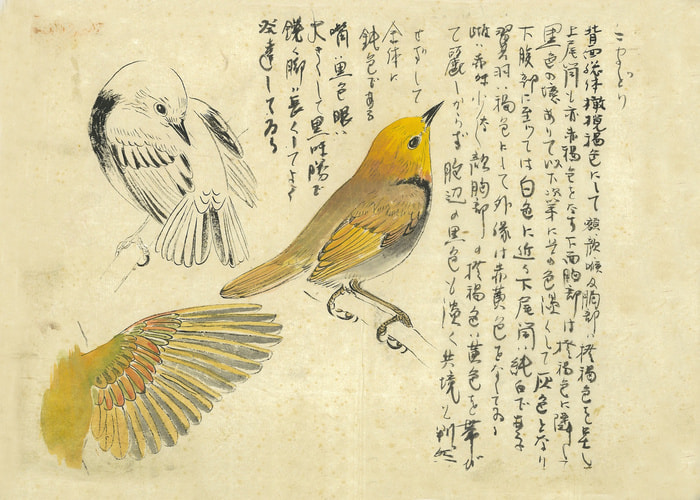 こまどり
背面総体橄欖褐色にして額顔喉及胸部は橙褐色を呈し
上尾筒も亦赤褐色をなす下面胸部は橙褐色に隣して
黒色の境ありて以下次第にその色淡くして灰色となり
下腹部に至りては白色に近く下尾筒は純白である
翼羽は褐色にして外縁は赤黄色をなしてゐる
雌は赤味少なく顔胸部の橙褐色は黄色を帯び
て麗しからず胸辺の黒色も淡く其境も判然
せずして
全体に
鈍色である
嘴は黒色眼は
大きくして黒味勝で
鋭く脚は長くしてよく
発達してゐる